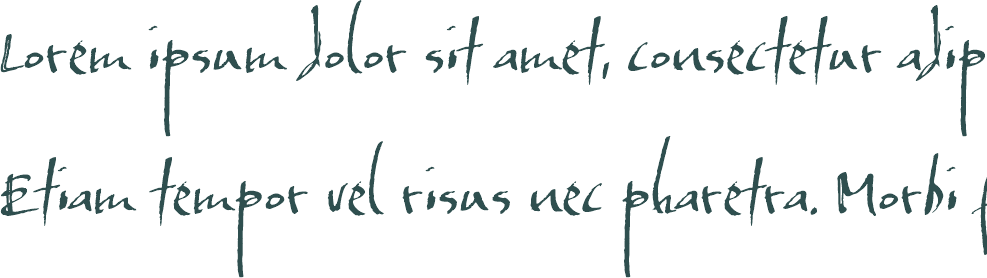 Lorem ipsum dolor sit amet, consectetur adip
Etiam tempor vel risus nec pharetra. Morbi